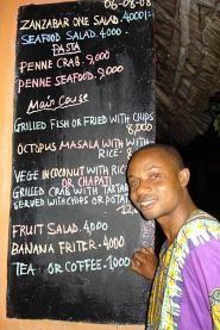 06-08-08
ZANZABAR ONE SALAD. 4000/=
SEAFOOD SALAD. 4000
PASTA
PENNE CRAB. 9,000
PENNE SEAFOOD. 9,000
Main Couse
GRILLED FISH OR FRIED WITH CHIPS
8,000
OCTOPUS MASALA WITH WITH
RICE- 8
VEGE IN COCONUT WITH RIC
OR CHAPATI
GRILLED CRAB WITH TARTAR
SERVED WITH CHIPS OR POTAT
FRUIT SALAD. 4000
BANANA FRITER- 4000
TEA OR COFFEE- 1000